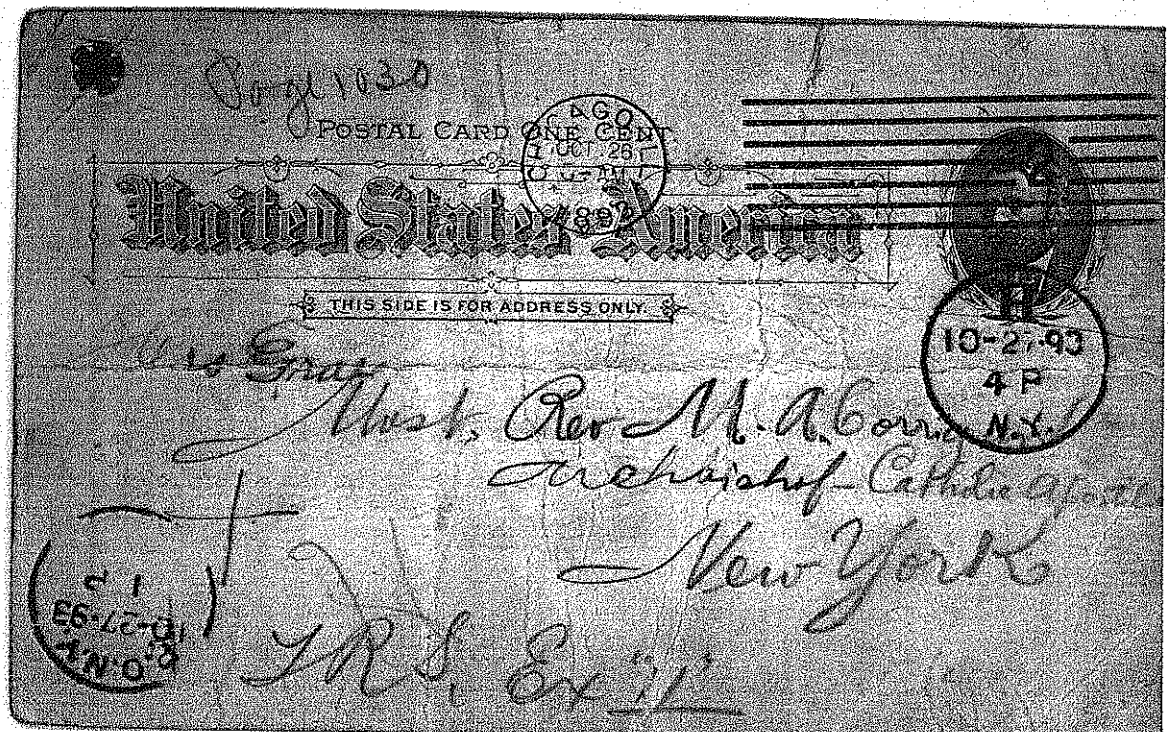 1030
POSTAL CARD ONE CENT
OCT. 26
AM
United States America
THIS SIDE IS FOR ADDRESS ONLY.
H
10-27-93
4 P
N.Y.
His Grace
Most. Rev M. A. Corri
Archbishop Catholic
New York
1 P
10-27-93
P.O.N.Y.
T R S, Ex "11"